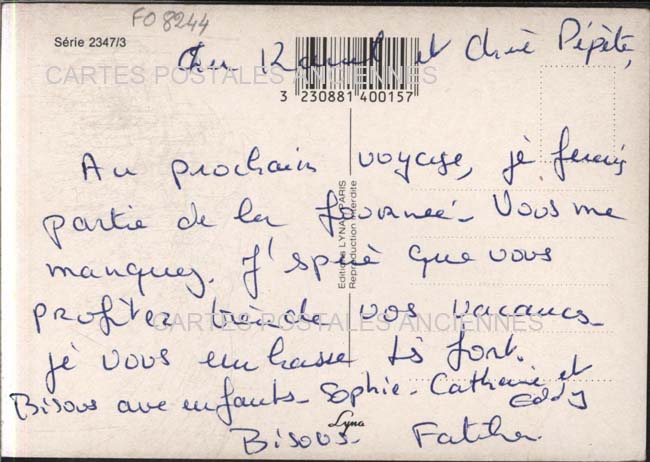 FO 8244
Série 2347/3
Cher et Chère Pépète,
CARTES POSTALES ANCIENNES
3 230881 400157
Au prochain voyage, je ferais
partie de la fournée. Vous me
manquez. J'spère que vous
profitez bien de vos vacances.
je vous embrasse ts fort.
Bisous aux enfants - Sophie - Catherine et
Eddy
Bisous.
Editions LYNA PARIS
Reproduction interdite
CARTES POSTALES ANCIENNES
Lyna